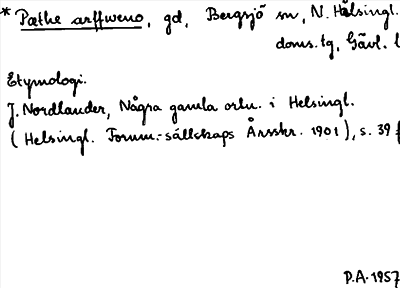 * Pæthe arffweno, gd, Bergsjö sn, N. Hälsingl.
doms.tg, Gävl. l
Etymologi.
J. Nordlander, Några gamla ortn. i Helsingl.
(Helsingl. Fornm.-sällskaps Årsskr. 1901), s. 39 f
P.A. 1957